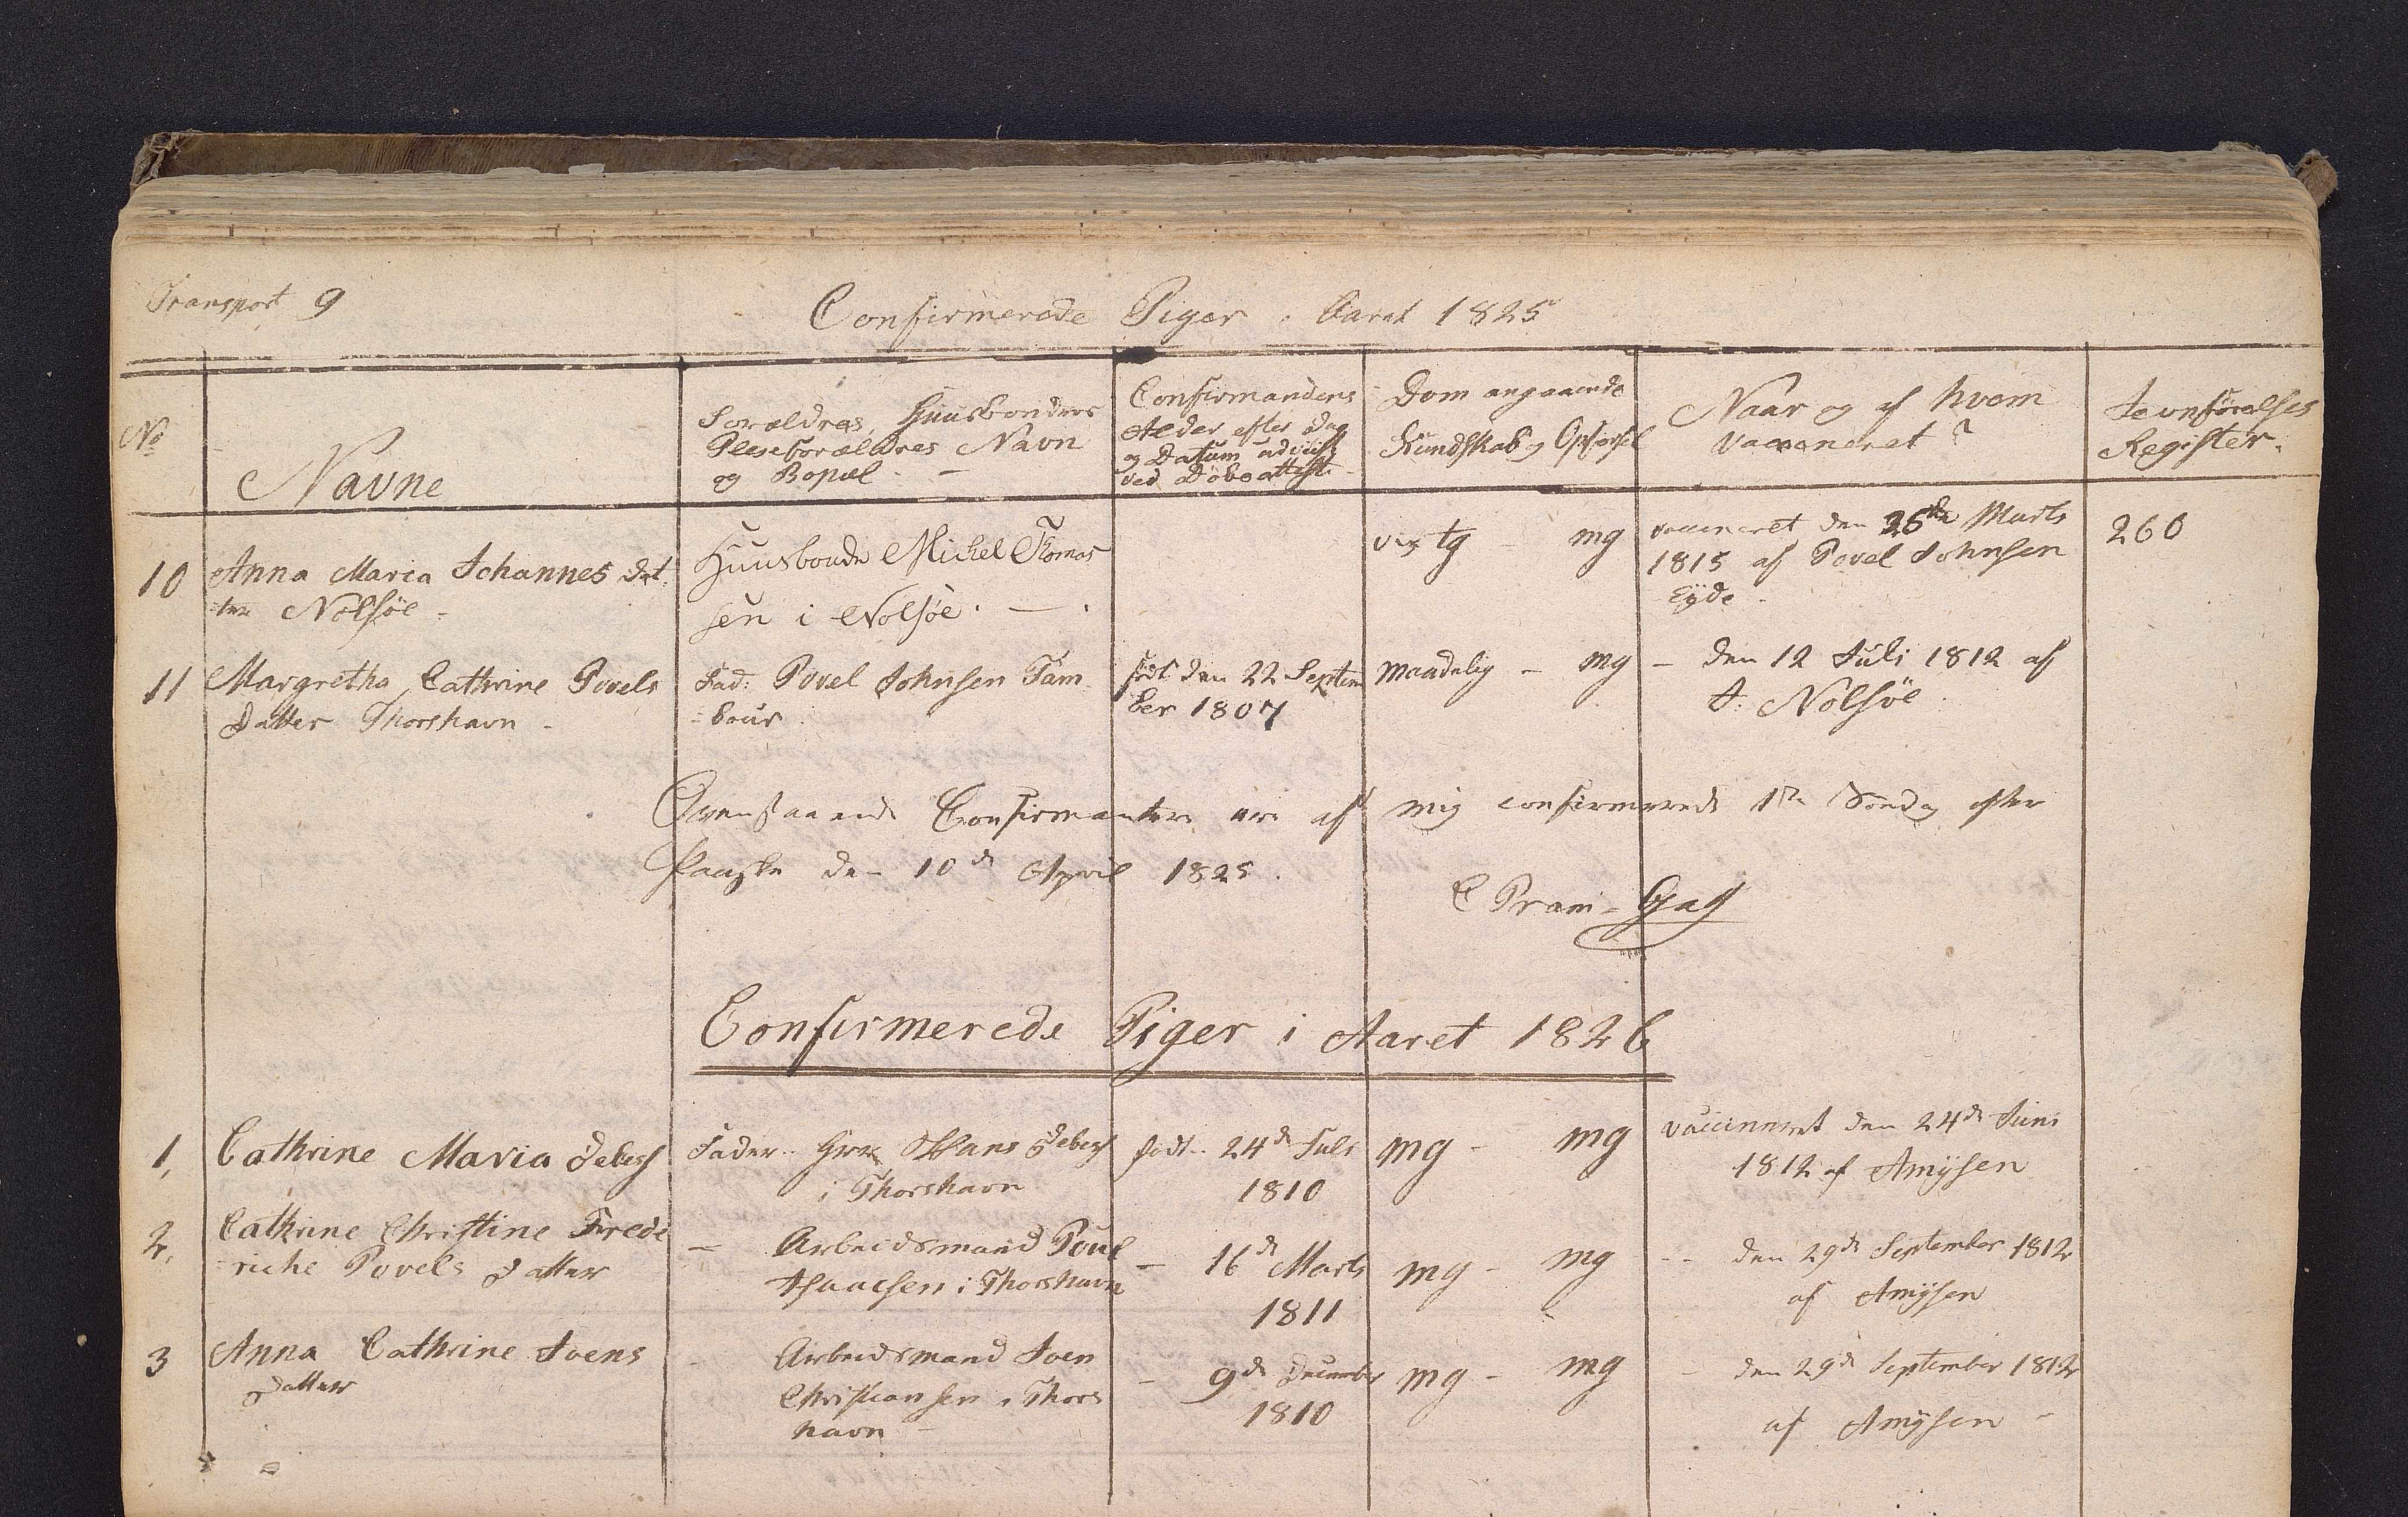 Transport 9
Confirmerede Piger i Aaret 1825
No
Navne
Forældres, Huusbonders
Pleieforældres Navn
og Bopæl
Confirmandens
Alder efter Dag
og Datum udviist
ved Døbeattest
Dom angaaende
Kundskab og Opførsel
Naar og af hvem
vaccineret?
Jevnførelses
Register.
10
Anna Maria Johannes dat
ter Nolsöe
Huusbonde Michel Thomas
sen i Nolsöe
tg - mg
vaccineret den 25de Marts
1815 af Povel Johnsen
Eyde
260
11
Margretha Cathrine Povels
Datter Thorshavn
Fad: Povel Johnsen Tam
bour
født den 22 Septem
ber 1807
maadelig - mg
- den 12 Juli 1812 af
J: Nolsöe
Ovenstaaende Confirmanter ere af mig confirmerede 1te Søndag efter
Paaske den 10de April 1825.
C Pram-Gad
Confirmerede Piger i Aaret 1826
1,
Cathrine Maria Debess
Fader.. Hans Debess
i Thorshavn
født.. 24de Juli
1810
mg - mg
vaccineret den 24de Juni
1812 af Amÿsen
2,
Cathrine Christine Frede
riche Povels Datter
- Arbeidsmand Poul
Isaacsen i Thorshavn
- 16de Marts
1811
mg - mg
- - den 29de September 1812
af Amÿsen
3
Anna Cathrine Joens
Datter
- Arbeidsmand Joen
Christiansen i Thors
havn
- 9de December
1810
mg - mg
- den 29de September 1812
af Amÿsen -